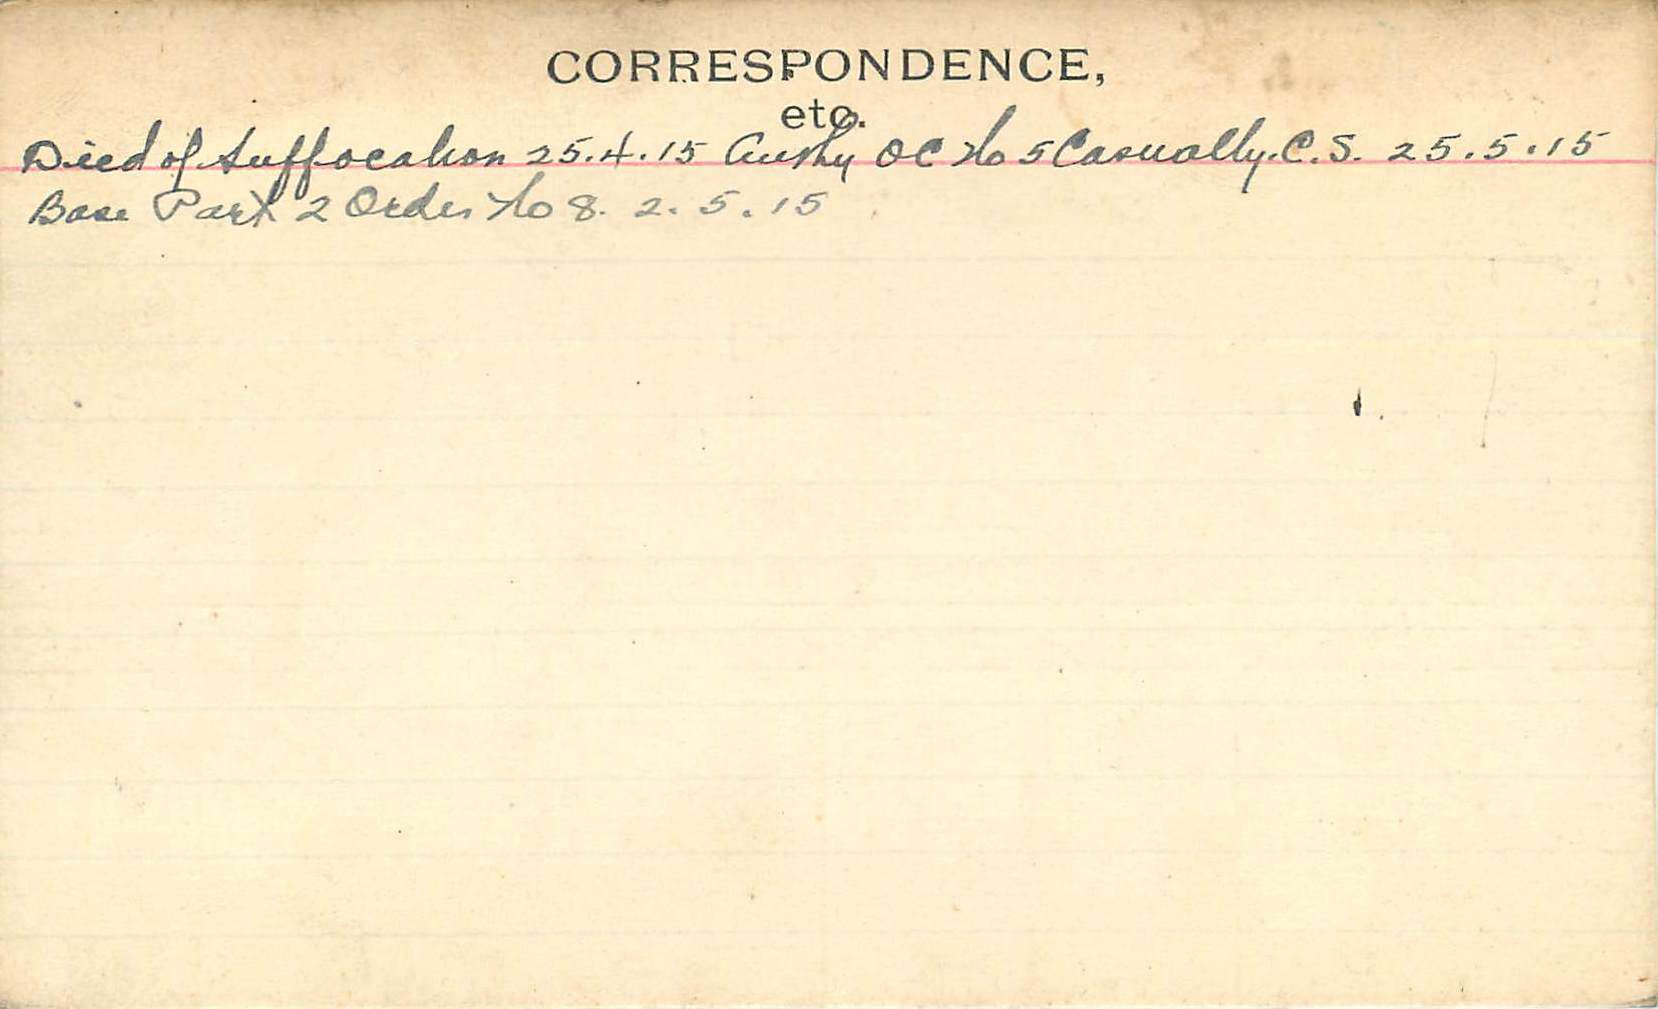 CORRESPONDENCE,
etc.
Died of Suffocation 25.4.15 Authy OC No 5 Casualty. C.S. 25.5.15
Base Part 2 Order No 8. 2.5.15